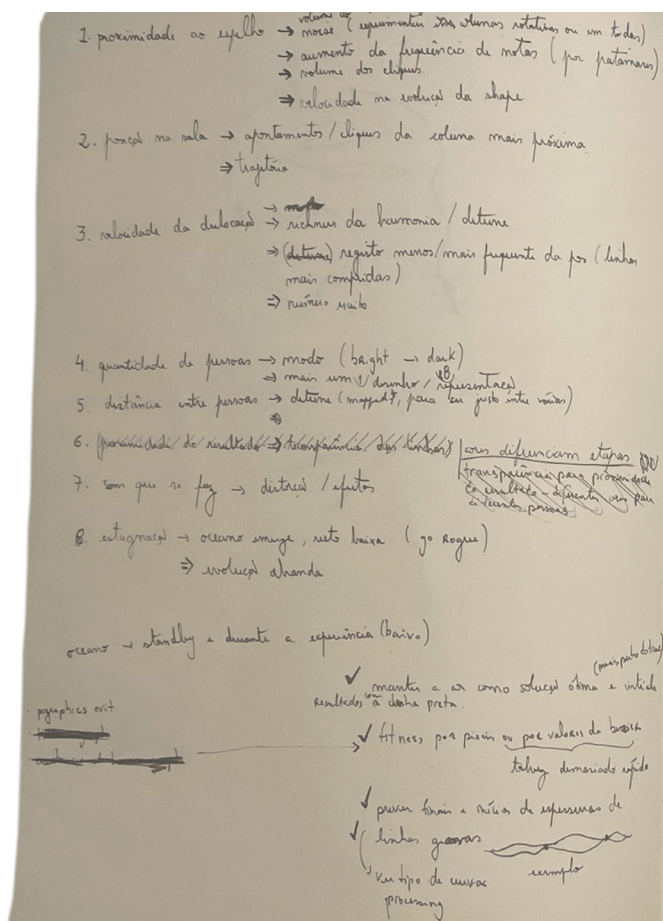 volume do
1. proximidade ao espelho → noise (experimentar colunas rotativas ou em todas)
→ aumento da frequência de notas (por patamares)
→ volume dos cliques
⇒ velocidade na evolução da shape
2. posição na sala → apontamentos / cliques da coluna mais próxima
⇒ trajetória
3. velocidade da deslocação → richness da harmonia / detune
⇒ (detune) registo menos/mais frequente da pos (linhas
mais compridas)
⇒ número
4. quantidade de pessoas → modo (bright → dark)
⇒ mais um desenho / representação
5. distância entre pessoas → detune (mapped, para ser justo entre vários)
6. (proximidade de resultado ⇒ transparência das linhas)
cores diferenciam etapas
transparência para proximidade
do resultado - diferentes cores para
diferentes pessoas
7. som que se faz → distorção / efeitos
8. estagnação → oceano emerge, resto baixa (go Rogue)
⇒ evolução abranda
oceano → standby e durante a experiência (baixo)
(mais perto do
✓ manter a cor como solução ótima e
resultados com a linha preta.
pgraphics
✓ fitness por pixeis ou por valores da
talvez demasiado rápido
✓ prever finais e inícios de espessuras de
✓ linhas
exemplo
ver tipo de curvas
processing